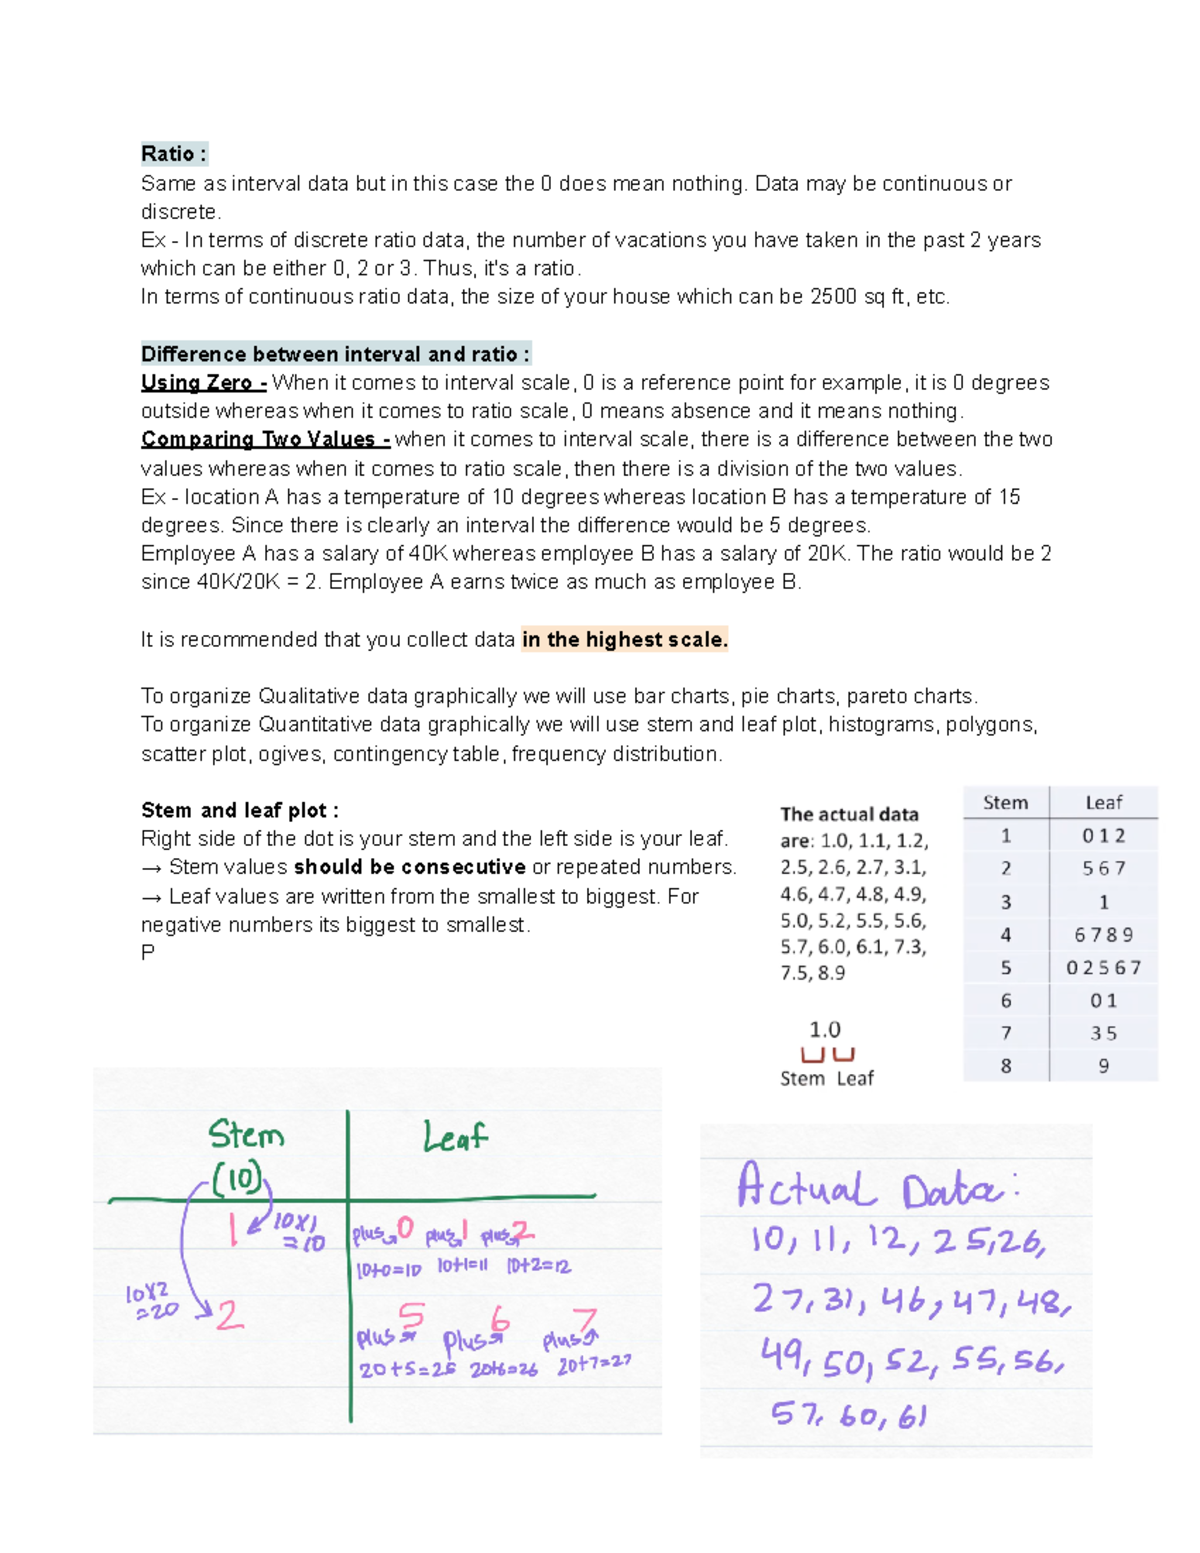 Ratio :
Same as interval data but in this case the 0 does mean nothing. Data may be continuous or
discrete.
Ex - In terms of discrete ratio data, the number of vacations you have taken in the past 2 years
which can be either 0, 2 or 3. Thus, it's a ratio.
In terms of continuous ratio data, the size of your house which can be 2500 sq ft, etc.
Difference between interval and ratio :
Using Zero - When it comes to interval scale, 0 is a reference point for example, it is 0 degrees
outside whereas when it comes to ratio scale, 0 means absence and it means nothing.
Comparing Two Values - when it comes to interval scale, there is a difference between the two
values whereas when it comes to ratio scale, then there is a division of the two values.
Ex - location A has a temperature of 10 degrees whereas location B has a temperature of 15
degrees. Since there is clearly an interval the difference would be 5 degrees.
Employee A has a salary of 40K whereas employee B has a salary of 20K. The ratio would be 2
since 40K/20K = 2. Employee A earns twice as much as employee B.
It is recommended that you collect data in the highest scale.
To organize Qualitative data graphically we will use bar charts, pie charts, pareto charts.
To organize Quantitative data graphically we will use stem and leaf plot, histograms, polygons,
scatter plot, ogives, contingency table, frequency distribution.
Stem and leaf plot :
Right side of the dot is your stem and the left side is your leaf.
→ Stem values should be consecutive or repeated numbers.
→ Leaf values are written from the smallest to biggest. For
negative numbers its biggest to smallest.
P
The actual data
are: 1.0, 1.1, 1.2,
2.5, 2.6, 2.7, 3.1,
4.6, 4.7, 4.8, 4.9,
5.0, 5.2, 5.5, 5.6,
5.7, 6.0, 6.1, 7.3,
7.5, 8.9
1.0
Stem Leaf
Stem Leaf
1 0 1 2
2 5 6 7
3 1
4 6 7 8 9
5 0 2 5 6 7
6 0 1
7 3 5
8 9
Stem Leaf
(10)
1 10x1 plus 0 plus 1 plus 2
=10
10+0=10 10+1=11 10+2=12
10x2
=20
2 5 6 7
plus plus plus
20+5=25 20+6=26 20+7=27
Actual Data:
10, 11, 12, 25,26,
27,31, 46,47,48,
49, 50, 52, 55,56,
57, 60, 61